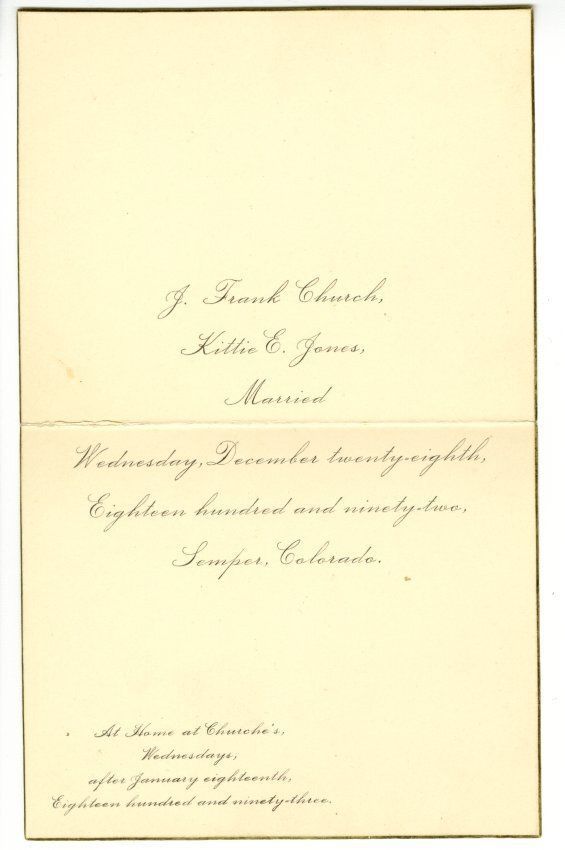 J. Frank Church,
Kittie E. Jones,
Married
Wednesday, December twenty-eighth,
Eighteen hundred and ninety-two,
Semper, Colorado.
At Home at Churche's,
Wednesdays,
after January eighteenth,
Eighteen hundred and ninety-three.